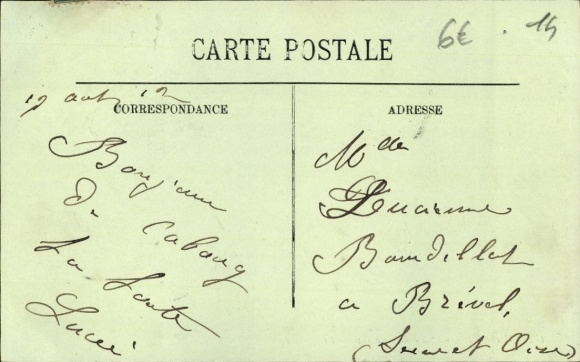 6€ . 14
CARTE POSTALE
19 août 12
CORRESPONDANCE
Bonjour
de Cabourg
ta tante
Lucie
ADRESSE
Mde
Lucienne
Bourdillat
a Bréval,
Seine et Oise